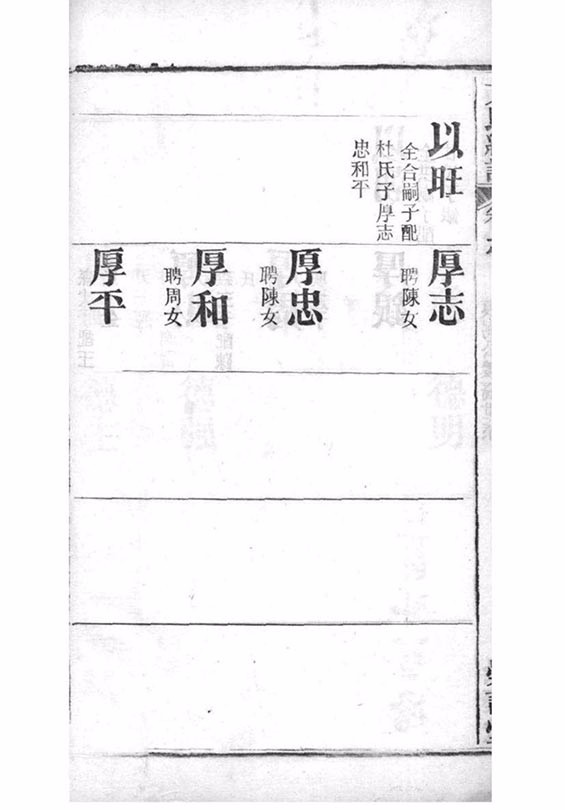 以旺
全合嗣子配
杜氏子厚志
忠和平
厚志
聘陳女
厚忠
聘陳女
厚和
聘周女
厚平